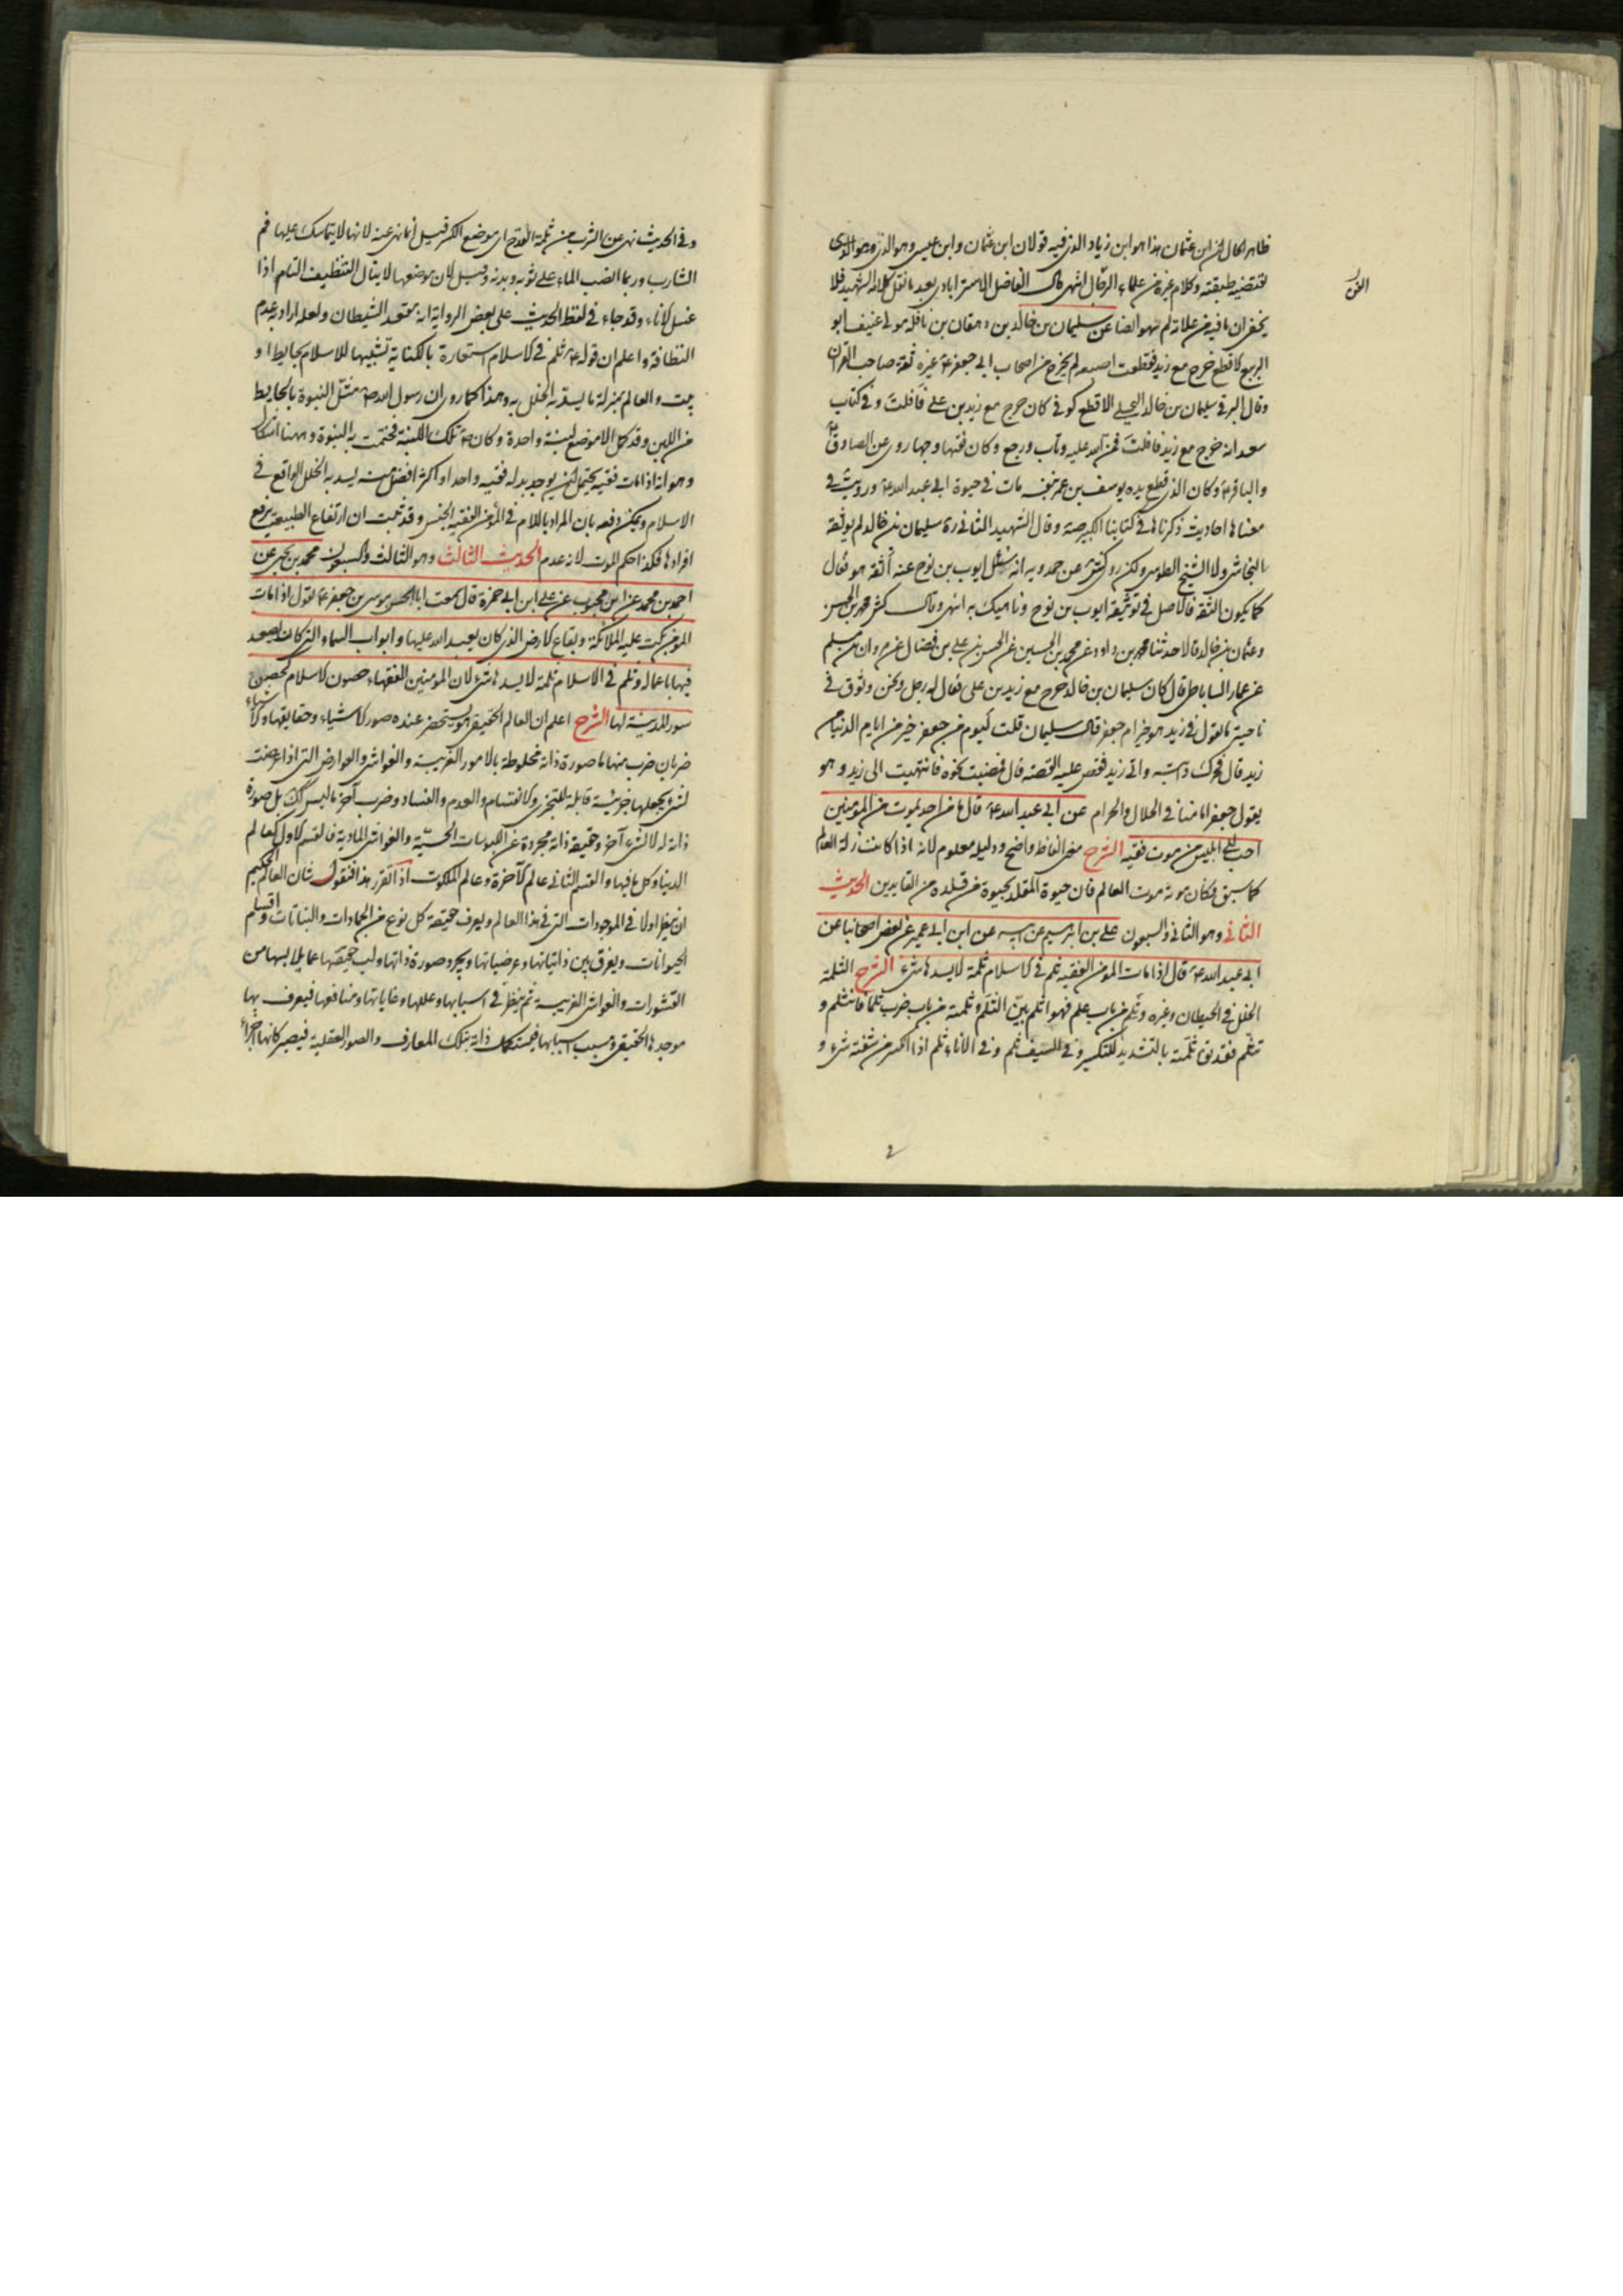 ظاهر الحال ان ابن عثمان هذا هو ابن زياد الذى فيه قولان ابن عثمان وابن عيسى وهو الذى
تقتضيه طبقته وكلام غيره من علماء الرجال انتهى قال الفاضل الاسترابادى بعد ما نقل كلام الشهيد فلا
يخفى ان ما فيه من علاته لم سهو ايضا عن سليمان بن خالد بن دهقان بن نافله مولى عفيف ابو
الربيع الاقطع خرج مع زيد فقطعت اصبعه لم يخرج من اصحاب ابى جعفر ع غيره ثقة صاحب القرآن
وقال البرقى سليمان بن خالد البجلى الاقطع كوفى كان خرج مع زيد بن على فافلت وفى كتاب
سعد انه خرج مع زيد فافلت فمن الله عليه وتاب ورجع وكان فقيها وجها روى عن الصادق
والباقر ع وكان الذى قطع يده يوسف بن عمر بنفسه مات فى حيوة ابى عبد الله ع ورويت فى
معناها احاديث ذكرناها فى كتابنا الكبير صه وقال الشهيد الثانى ره سليمان بن خالد لم يوثقه
النجاشى ولا الشيخ الطوسى ولكن روى كش عن حمدويه انه سئل ايوب بن نوح عنه أثقة هو فقال
كما يكون الثقة فالاصل فى توثيقه ايوب بن نوح وناهيك به انتهى وقال كش محمد بن الحسن
وعثمان بن خالد قالا حدثنا محمد بن داود عن محمد بن الحسين عن الحسن بن على بن فضال عن مروان بن مسلم
عن عمار الساباطى قال كان سليمان بن خالد خرج مع زيد بن على فقال له رجل ونحن وقوف فى
ناحية ما تقول فى زيد هو خير ام جعفر قال سليمان قلت ليوم من جعفر خير من ايام الدنيا من
زيد قال فحرك دابته واتى زيد فقص عليه القصة قال فمضيت نحوه فانتهيت الى زيد وهو
يقول جعفر امامنا فى الحلال والحرام عن ابى عبد الله ع قال ما من احد يموت من المؤمنين
احب الى ابليس من موت فقيه الشرح معنى الفاظ واضح ودليله معلوم لانه اذا كانت زلة العالم
كما سبق فكان موته موت العالم فان حيوة المقلد بحيوة من قلده من القايدين الحديث
الثانى وهو الثانى والسبعون على بن ابرهيم عن ابيه عن ابن ابى عمير عن بعض اصحابنا عن
ابى عبد الله ع قال اذا مات المؤمن الفقيه ثلم فى الاسلام ثلمة لا يسدها شىء الشرح الثلمة
الخلل فى الحيطان وغيره وثلم من باب علم فهو اثلم بين الثلم وثلمته من باب ضرب ثلما فانثلم و
تثلم فقد يق ثلمته بالتشديد للتكسير وفى السيف ثلم وفى الاناء ثلم اذا انكسر من شفته شىء و
وفى الحديث نهى عن الشرب من ثلمة القدح اى موضع الكسر قيل انما نهى عنه لانها لا يتماسك عليها فم
الشارب وربما انصب الماء على ثوبه وبدنه وقيل لان موضعها لا ينال التنظيف التام اذا
غسل الاناء وقد جاء فى لفظ الحديث على بعض الرواية انه مقعد الشيطان ولعله اراد به عدم
النظافة واعلم ان قوله ع ثلم فى الاسلام استعارة بالكناية تشبيها للاسلام بحايط او
بيت والعالم بمنزلة ما يسد به الخلل به وهذا كما روى ان رسول الله ص مثل النبوة بالحايط
من اللبن وقد كمل الا موضع لبنة واحدة وكان ص تلك اللبنة فختمت به النبوة وههنا اشكال
وهو انه اذا مات فقيه يحتمل ان يوجد بدله فقيه واحد او اكثر افضل منه يسد به الخلل الواقع فى
الاسلام ويمكن دفعه بان المراد باللام فى المؤمن الفقيه الجنس وقد ثبت ان ارتفاع الطبيعة برفع
افرادها فكذا حكم الموت لانه عدم الحديث الثالث وهو الثالث والسبعون محمد بن يحيى عن
احمد بن محمد عن ابن محبوب عن على ابن ابى حمزة قال سمعت ابا الحسن موسى بن جعفر ع يقول اذا مات
المؤمن بكت عليه الملائكة وبقاع الارض الذى كان يعبد الله عليها وابواب السماء التى كان يصعد
فيها باعماله وثلم فى الاسلام ثلمة لا يسدها شىء لان المؤمنين الفقهاء حصون الاسلام كحصن
سور المدينة لها الشرح اعلم ان العالم الحقيقى هو يستحضر عنده صور الاشياء وحقايقها والاشياء
ضربان ضرب منها ما صورة ذاته مخلوطة بالامور الغريبة والغواشى والعوارض التى اذا عرضت
لشىء يجعلها جزئية قابلة للتجزى والانقسام والعدم والفساد وضرب آخر ما ليس كك بل صورة
ذاته له لا لشىء آخر وحقيقة ذاته مجردة عن اللبوسات الحسية والغواشى المادية فالقسم الاول كعالم
الدنيا وكل ما فيها والقسم الثانى عالم الآخرة وعالم الملكوت اذا تقرر هذا فنقول شان العالم الحكيم
ان ينظر اولا فى الموجودات التى فى هذا العالم ويعرف حقيقة كل نوع من الجمادات والنباتات واقسام
الحيوانات ويفرق بين ذاتياتها وعرضياتها ويجرد صورة ذاتها ولب حقيقتها عما يلابسها من
القشورات والغواشى الغريبة ثم ينظر فى اسبابها وعللها وغاياتها ومنافعها فيعرف بها
موجدها الحقيقى ومسبب اسبابها فيستكمل ذاته بتلك المعارف والصور العقلية فيصير كانها اجزاء